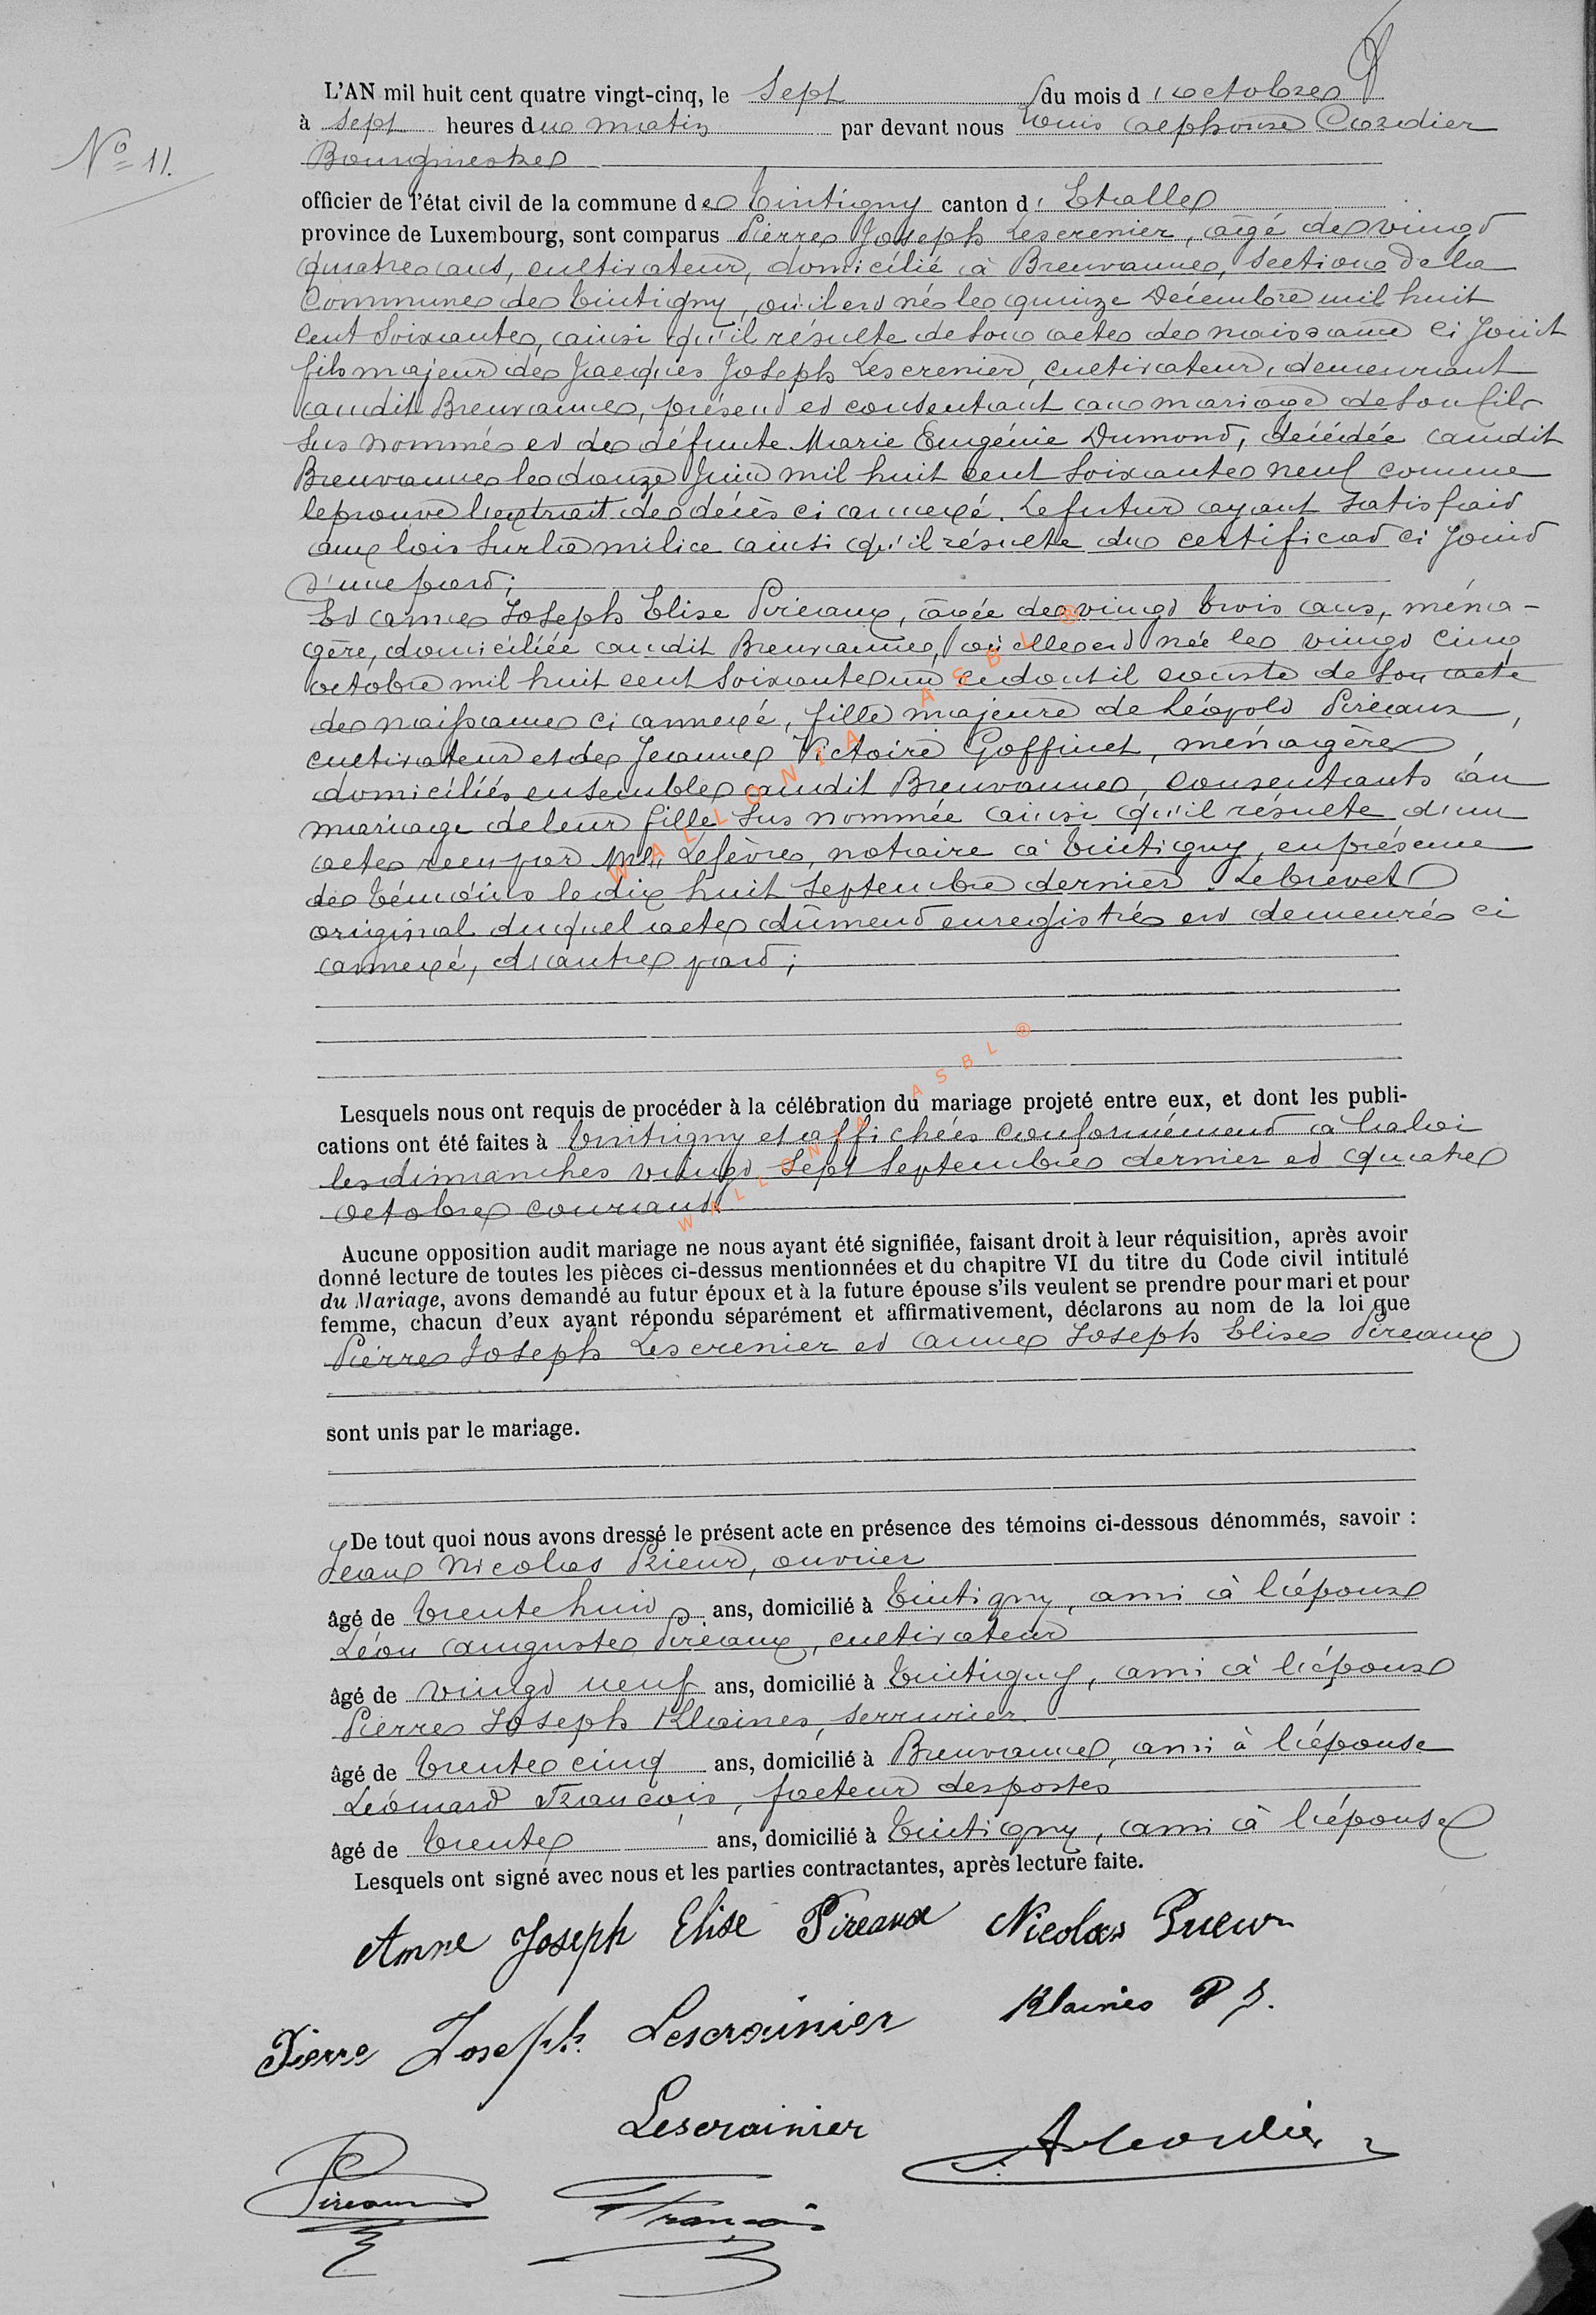 L'AN mil huit cent quatre vingt-cinq, le Sept du mois d'octobre
à Sept heures du matin par devant nous Louis Alphonse Cordier
Nº 11.
Bourgmestre
officier de l'état civil de la commune de Tintigny canton d'Etalle
province de Luxembourg, sont comparus Pierre Joseph Lescrenier, âgé de vingt
quatre ans, cultivateur, domicilié à Breuvanne, section de la
Commune de Tintigny, où il est né le quinze Décembre mil huit
cent soixante, ainsi qu'il résulte de son acte de naissance ci joint
fils majeur de Jacques Joseph Lescrenier, cultivateur, demeurant
audit Breuvanne, présent et consentant au mariage de son fils
sus nommé et de défunte Marie Eugénie Dumont, décédée audit
Breuvanne le douze Juin mil huit cent soixante neuf comme
le prouve l'extrait de décès ci annexé. Le futur ayant satisfait
aux lois sur la milice ainsi qu'il résulte du certificat ci joint
d'une part;
Et Anne Joseph Elise Pireaux, âgée de vingt trois ans, ména-
gère, domiciliée audit Breuvanne, où elle est née le vingt cinq
octobre mil huit cent soixante un ce dont il conste de son acte
de naissance ci annexé, fille majeure de Léopold Pireaux,
cultivateur et de Jeanne Victoire Goffinet, ménagère,
domiciliés ensemble audit Breuvanne, consentants au
mariage de leur fille sus nommée ainsi qu'il résulte d'un
acte reçu par Mtre Lefèvre, notaire à Tintigny, en présence
de témoins le dix huit Septembre dernier. Le brevet
original duquel acte dûment enregistré est demeuré ci
annexé, d'autre part;
Lesquels nous ont requis de procéder à la célébration du mariage projeté entre eux, et dont les publi-
cations ont été faites à Tintigny et affichées conformément à la loi
les dimanches vingt Sept Septembre dernier et quatre
octobre courant.
Aucune opposition audit mariage ne nous ayant été signifiée, faisant droit à leur réquisition, après avoir
donné lecture de toutes les pièces ci-dessus mentionnées et du chapitre VI du titre du Code civil intitulé
du Mariage, avons demandé au futur époux et à la future épouse s'ils veulent se prendre pour mari et pour
femme, chacun d'eux ayant répondu séparément et affirmativement, déclarons au nom de la loi que
Pierre Joseph Lescrenier et Anne Joseph Elise Pireaux
sont unis par le mariage.
De tout quoi nous avons dressé le présent acte en présence des témoins ci-dessous dénommés, savoir :
Jean Nicolas Prieur, ouvrier
âgé de trente huit ans, domicilié à Tintigny, ami à l'épouse
Léon Auguste Pireaux, cultivateur
âgé de vingt neuf ans, domicilié à Tintigny, ami à l'épouse
Pierre Joseph Klaines, serrurier
âgé de trente cinq ans, domicilié à Breuvanne, ami à l'épouse
Léonard François, facteur des postes
âgé de trente ans, domicilié à Tintigny, ami à l'épouse
Lesquels ont signé avec nous et les parties contractantes, après lecture faite.
Anne Joseph Elise Pireaux Nicolas Prieur
Pierre Joseph Lescrainier Klaines P J.
Lescrainier
A Cordier
Pireaux François
WALLONIA ASBL ®
WALLONIA ASBL ®